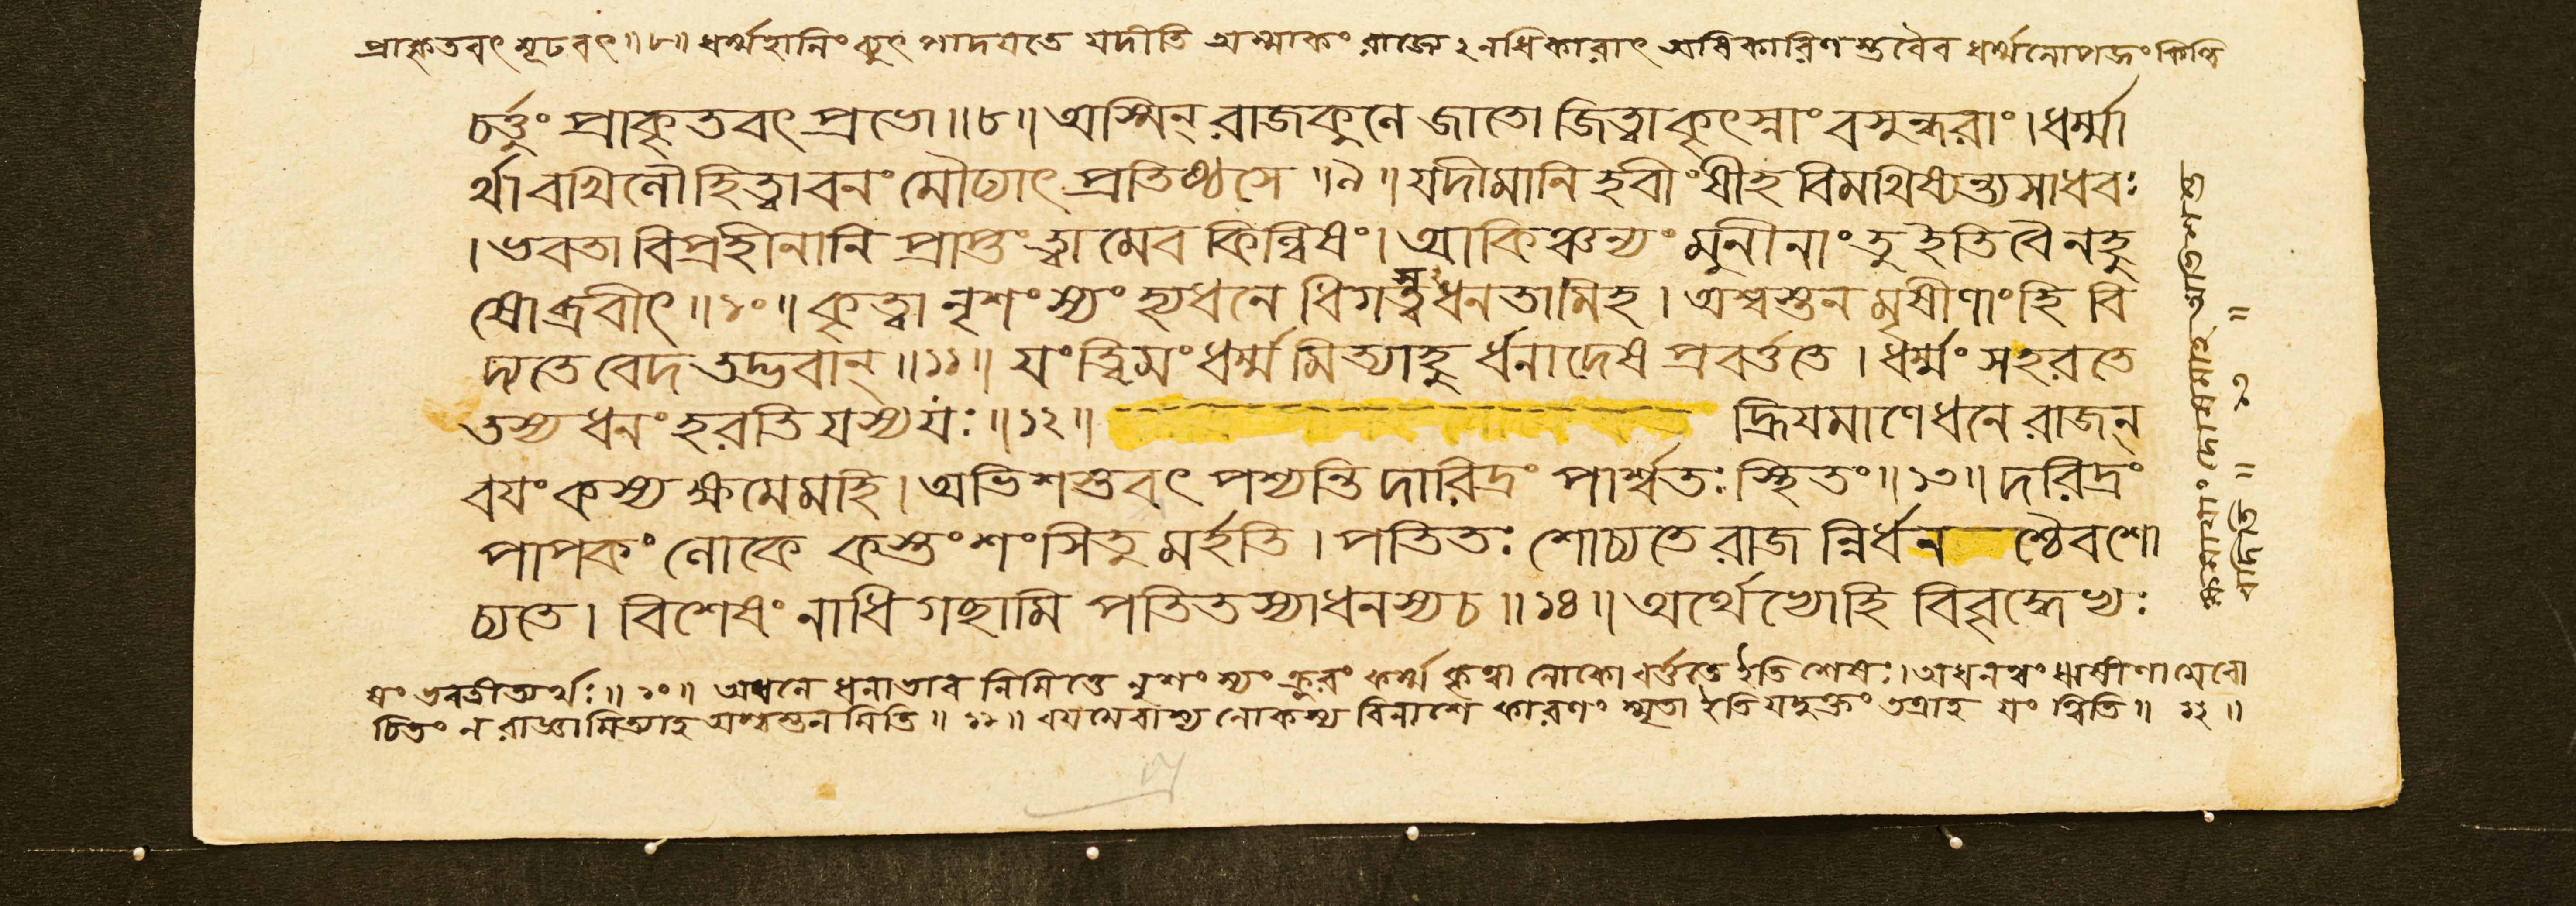 প্রাকৃতবৎ মূঢবৎ॥৮॥ ধর্ম্মহানিং পাদযতে যদীতি অস্মাকং রাজ্যেঽনধিকারাৎ অধিকারিণ স্তবৈব ধর্ম্মলোপজং কিল্বি
চর্ত্তুং প্রাকৃতবৎ প্রভো॥৮॥ অস্মিন্ রাজকুলে জাতো জিত্বা কৃৎস্নাং বসুন্ধরাং। ধর্ম্মা
র্থাবখিলৌ হিত্বা বনং মৌঢ্যাৎ প্রতিষ্ঠসে॥৯॥ যদীমানি হবীংষীহ বিমথিষ্যন্ত্যসাধবঃ
। ভবতা বিপ্রহীনানি প্রাপ্তং ত্বামেব কিল্বিষং। আকিঞ্চন্যং মুনীনাং তু ইতি বৈ নহু
ষোব্রবীৎ॥১০॥ কৃত্বা নৃশংস্যং হ্যধনে ধিগস্ত্বধনতামিহ। অশ্বস্তন মৃষীণাং হি বি
দ্যতে বেদ তদ্ভবান্॥১১॥ যং ত্বিমং ধর্ম্মমিত্যাহু র্ধনাদেষ প্রবর্ত্ততে। ধর্ম্মং সংহরতে
তস্য ধনং হরতি যস্য যঃ॥১২॥ হ্রিযমাণে ধনে রাজন্
বযং কস্য ক্ষমেমহি। অভিশস্তবৎ পশ্যন্তি দারিদ্রং পার্শ্বতঃ স্থিতং॥১৩॥ দরিদ্রং
পাপকং লোকে কস্তং শংসিতু মর্হতি। পতিতঃ শোচ্যতে রাজ ন্নির্ধন শ্চৈব শো
চ্যতে। বিশেষং নাধিগছামি পতিতস্যাধনস্য চ॥১৪॥ অর্থেভ্যো হি বিবৃদ্ধেভ্যঃ
ষং ভবতীত্যর্থঃ॥১০॥ অধনে ধনাভাব নিমিত্তে নৃশংস্যং ক্রুরং কর্ম্ম কৃত্বা লোকো বর্ত্ততে ইতি শেষঃ। অধনত্বং ঋষীণামেবো
চিতং ন রাজ্ঞামিত্যাহ অশ্বস্তনমিতি॥১১॥ বযমেবাস্য লোকস্য বিনাশে কারণং স্মৃতা ইতি যদুক্তং তত্রাহ যং ত্বিতি॥১২॥
ক্ষমাযাং দোষমাহ অভিশস্ত
বদিতি॥১৩॥